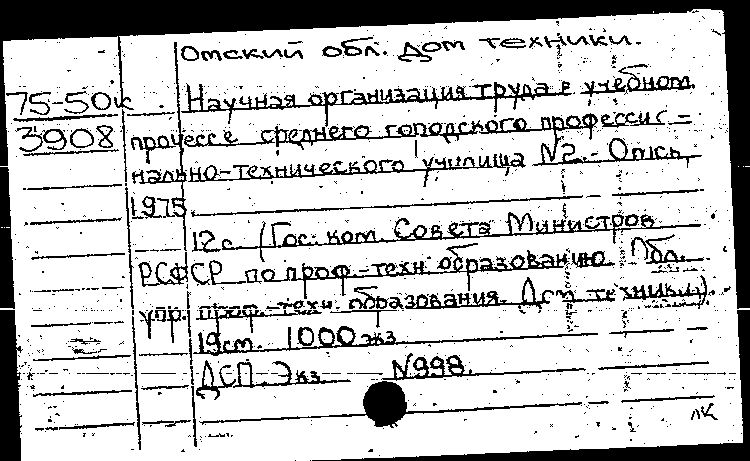 Омский обл. Дом техники.
75-50к Научная организация труда в учебном
3908 процессе среднего городского професси-
нально-технического училища N2.- Омск,
1975.
12с. (Гос. ком. Совета Министров
РСФСР по проф.-техн. образованию. Обл.
упр. проф.-техн. образования. Дом техники).
19см. 1000 экз
ДСП. Экз. N998.
лк